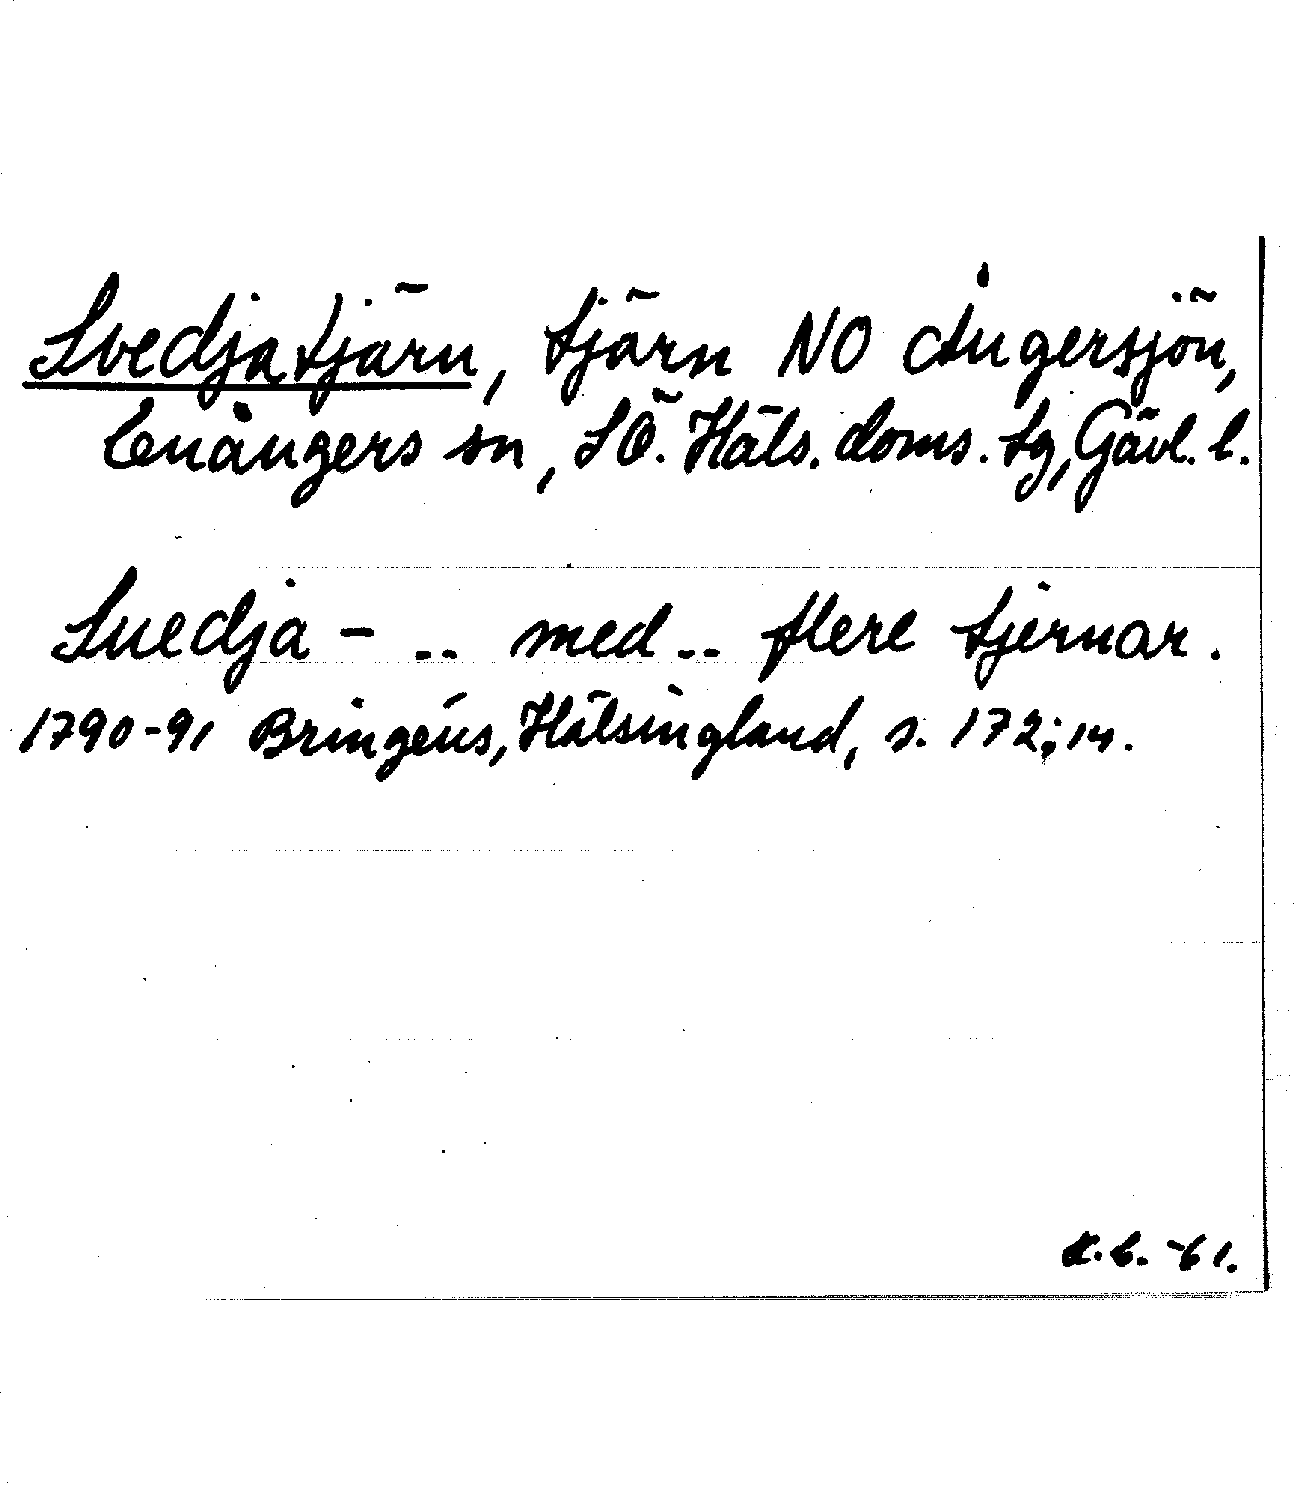 Svedjatjärn, tjärn NO Ångersjön,
Enångers sn, SÖ. Häls. doms. tg, Gävl. l.
Svedja - .. med .. flere tjernar.
1790-91 Bringéus, Hälsingland, s. 172; 14.
-61.